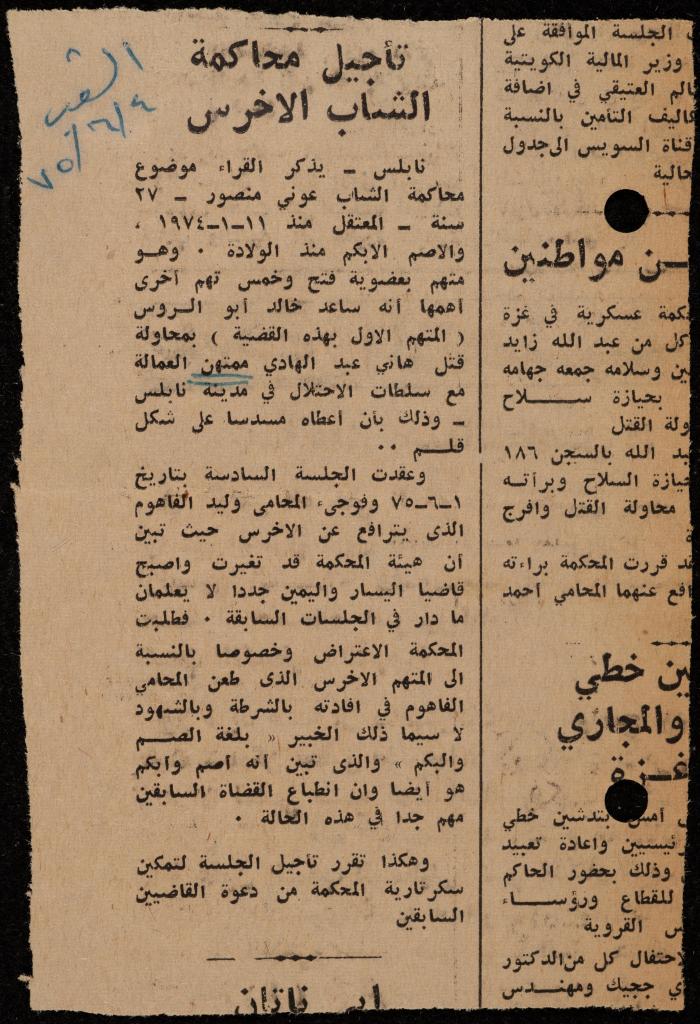 الشعب
٧٥/٦/٤
تأجيل محاكمة
الشاب الاخرس
نابلس ـ يذكر القراء موضوع
محاكمة الشاب عوني منصور ـ ٢٧
سنة ـ المعتقل منذ ١١-١-١٩٧٤ ،
والاصم الابكم منذ الولادة . وهو
متهم بعضوية فتح وخمس تهم أخرى
أهمها أنه ساعد خالد أبو الروس
( المتهم الاول بهذه القضية ) بمحاولة
قتل هاني عبد الهادي ممتهن العمالة
مع سلطات الاحتلال في مدينة نابلس
ـ وذلك بأن أعطاه مسدسا على شكل
قلم ..
وعقدت الجلسة السادسة بتاريخ
١-٦-٧٥ وفوجىء المحامى وليد الفاهوم
الذى يترافع عن الاخرس حيث تبين
أن هيئة المحكمة قد تغيرت واصبح
قاضيا اليسار واليمين جددا لا يعلمان
ما دار في الجلسات السابقة . فطلبت
المحكمة الاعتراض وخصوصا بالنسبة
الى المتهم الاخرس الذى طعن المحامي
الفاهوم في افادته بالشرطة وبالشهود
لا سيما ذلك الخبير « بلغة الصم
والبكم » والذى تبين أنه أصم وأبكم
هو أيضا وان انطباع القضاة السابقين
مهم جدا في هذه الحالة .
وهكذا تقرر تأجيل الجلسة لتمكين
سكرتارية المحكمة من دعوة القاضيين
السابقين
الجلسة الموافقة على
وزير المالية الكويتية
العتيقي في اضافة
التأمين بالنسبة
قناة السويس الى جدول
مواطنين
عسكرية في غزة
كل من عبد الله زايد
وسلامه جمعه جهامه
بحيازة سلاح
القتل
الله بالسجن ١٨٦
السلاح وبرأته
محاولة القتل وافرج
قررت المحكمة براءته
عنهما المحامي أحمد
خطي
والمجاري
غزة
أمس بتدشين خطي
واعادة تعبيد
وذلك بحضور الحاكم
للقطاع ورؤساء
القروية
كل من الدكتور
ججيك ومهندس